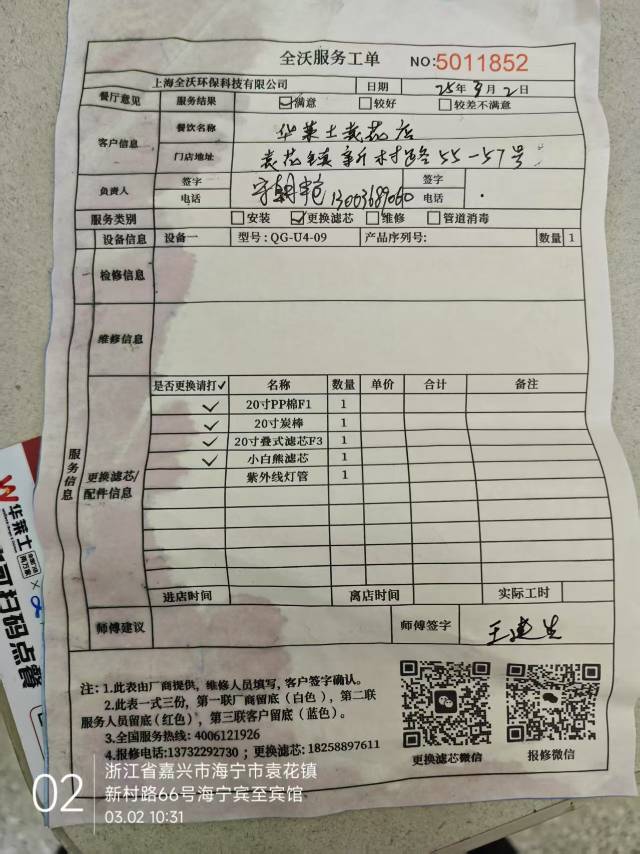 全沃服务工单 NO:5011852
上海全沃环保科技有限公司 日期 25年3月2日
餐厅意见 服务结果 ☑满意 □较好 □较差不满意
客户信息 餐饮名称 华莱士袁花店
门店地址 袁花镇新村路55-57号
负责人 签字 签字
电话 13003689060 电话
服务类别 □安装 ☑更换滤芯 □维修 □管道消毒
设备信息 设备一 型号:QG-U4-09 产品序列号: 数量 1
检修信息
维修信息
服务信息
更换滤芯/配件信息
是否更换请打✓ 名称 数量 单价 合计 备注
✓ 20寸PP棉F1 1
✓ 20寸炭棒 1
✓ 20寸叠式滤芯F3 1
✓ 小白熊滤芯 1
紫外线灯管 1
进店时间 离店时间 实际工时
师傅建议 师傅签字 王建生
注:1.此表由厂商提供,维修人员填写,客户签字确认。
2.此表一式三份,第一联厂商留底(白色),第二联
服务人员留底(红色),第三联客户留底(蓝色)。
3.全国服务热线:4006121926
4.报修电话:13732292730;更换滤芯:18258897611
更换滤芯微信 报修微信
华莱士
可扫码点餐
02 浙江省嘉兴市海宁市袁花镇
新村路66号海宁宾至宾馆
03.02 10:31